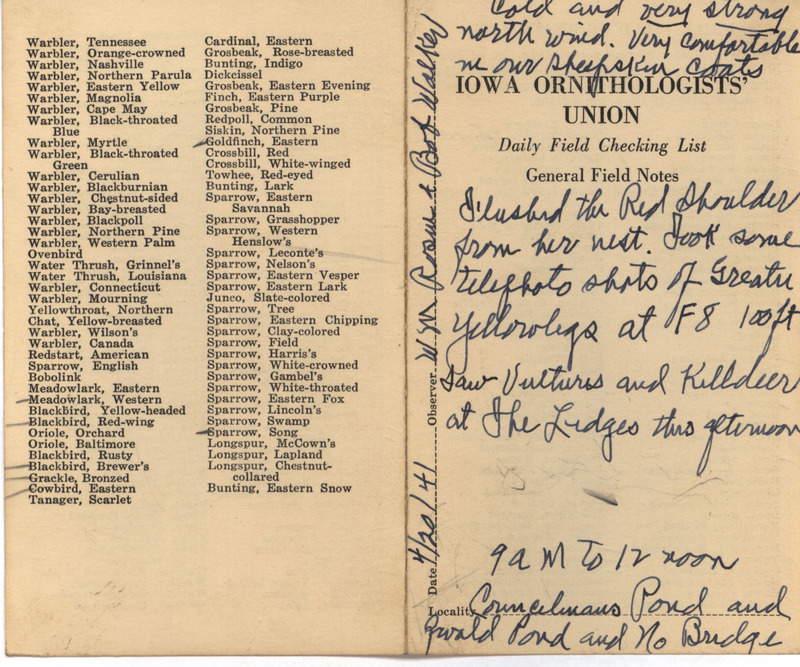 Warbler, Tennessee
Warbler, Orange-crowned
Warbler, Nashville
Warbler, Northern Parula
Warbler, Eastern Yellow
Warbler, Magnolia
Warbler, Cape May
Warbler, Black-throated
Blue
Warbler, Myrtle
Warbler, Black-throated
Green
Warbler, Cerulian
Warbler, Blackburnian
Warbler, Chestnut-sided
Warbler, Bay-breasted
Warbler, Blackpoll
Warbler, Northern Pine
Warbler, Western Palm
Ovenbird
Water Thrush, Grinnel's
Water Thrush, Louisiana
Warbler, Connecticut
Warbler, Mourning
Yellowthroat, Northern
Chat, Yellow-breasted
Warbler, Wilson's
Warbler, Canada
Redstart, American
Sparrow, English
Bobolink
Meadowlark, Eastern
Meadowlark, Western
Blackbird, Yellow-headed
Blackbird, Red-wing
Oriole, Orchard
Oriole, Baltimore
Blackbird, Rusty
Blackbird, Brewer's
Grackle, Bronzed
Cowbird, Eastern
Tanager, Scarlet
Cardinal, Eastern
Grosbeak, Rose-breasted
Bunting, Indigo
Dickcissel
Grosbeak, Eastern Evening
Finch, Eastern Purple
Grosbeak, Pine
Redpoll, Common
Siskin, Northern Pine
Goldfinch, Eastern
Crossbill, Red
Crossbill, White-winged
Towhee, Red-eyed
Bunting, Lark
Sparrow, Eastern
Savannah
Sparrow, Grasshopper
Sparrow, Western
Henslow's
Sparrow, Leconte's
Sparrow, Nelson's
Sparrow, Eastern Vesper
Sparrow, Eastern Lark
Junco, Slate-colored
Sparrow, Tree
Sparrow, Eastern Chipping
Sparrow, Clay-colored
Sparrow, Field
Sparrow, Harris's
Sparrow, White-crowned
Sparrow, Gambel's
Sparrow, White-throated
Sparrow, Eastern Fox
Sparrow, Lincoln's
Sparrow, Swamp
Sparrow, Song
Longspur, McCown's
Longspur, Lapland
Longspur, Chestnut-
collared
Bunting, Eastern Snow
Date 4/20/41 Observer Wm Rosene & Bob Walker
Cold and very strong
north wind. Very comfortable
in our sheepskin coats
IOWA ORNITHOLOGISTS'
UNION
Daily Field Checking List
General Field Notes
Flushed the Red Shoulder
from her nest. Took some
telephoto shots of Greater
Yellowlegs at F8 100ft
Saw Vultures and Killdeer
at The Ledges this afternoon
9 a M to 12 noon
Locality Councelmans Pond and
Pond and No Bridge